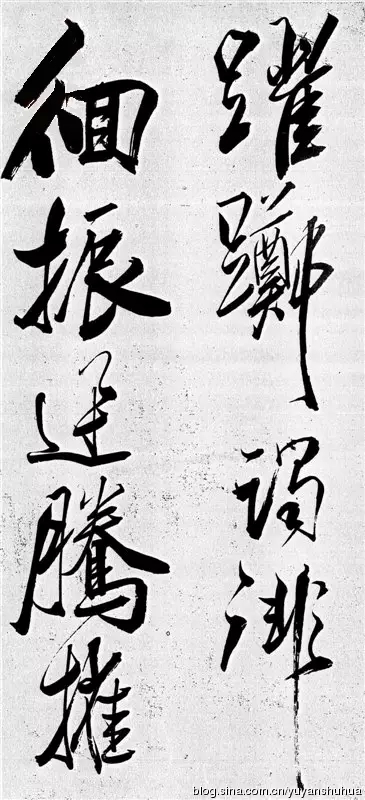 躍躑躅徘
徊振迅騰摧
blog.sina.com.cn/yuyanshuhua